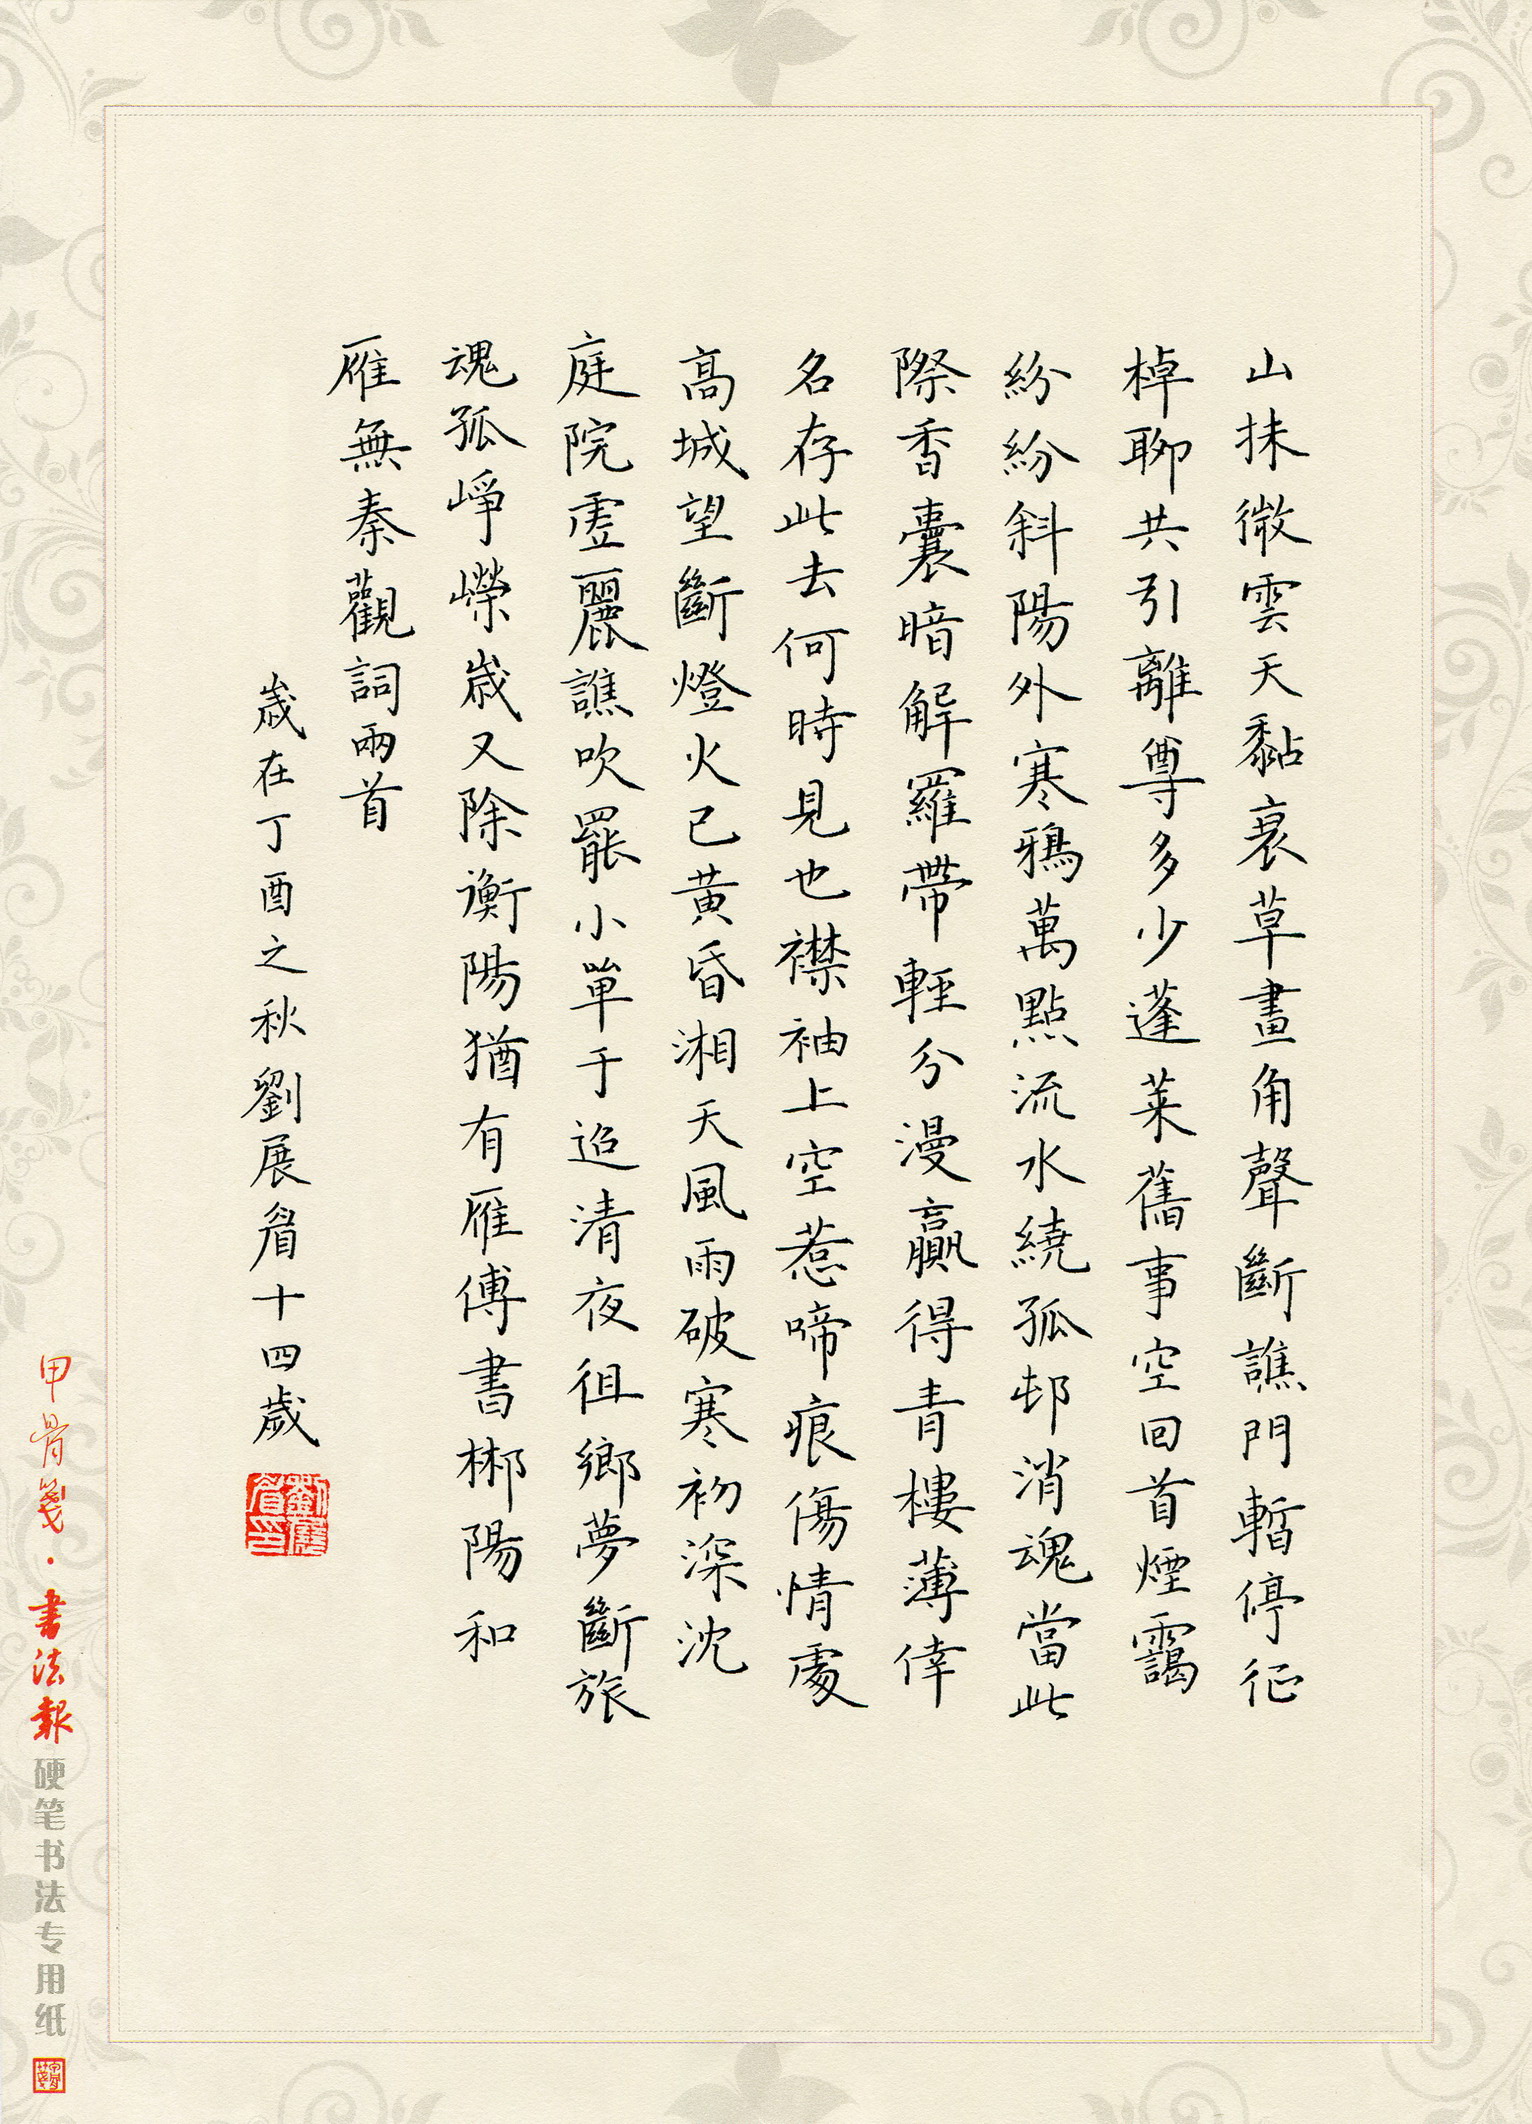 山抹微雲天黏衰草畫角聲斷譙門暫停征
棹聊共引離尊多少蓬萊舊事空回首煙靄
紛紛斜陽外寒鴉萬點流水繞孤邨消魂當此
際香囊暗解羅帶輕分漫贏得青樓薄倖
名存此去何時見也襟袖上空惹啼痕傷情處
高城望斷燈火已黃昏湘天風雨破寒初深沈
庭院虛麗譙吹罷小單于迢清夜徂鄉夢斷旅
魂孤崢嶸歲又除衡陽猶有雁傳書郴陽和
雁無秦觀詞兩首
歲在丁酉之秋劉展眉十四歲
甲骨箋·書法報硬笔书法专用纸